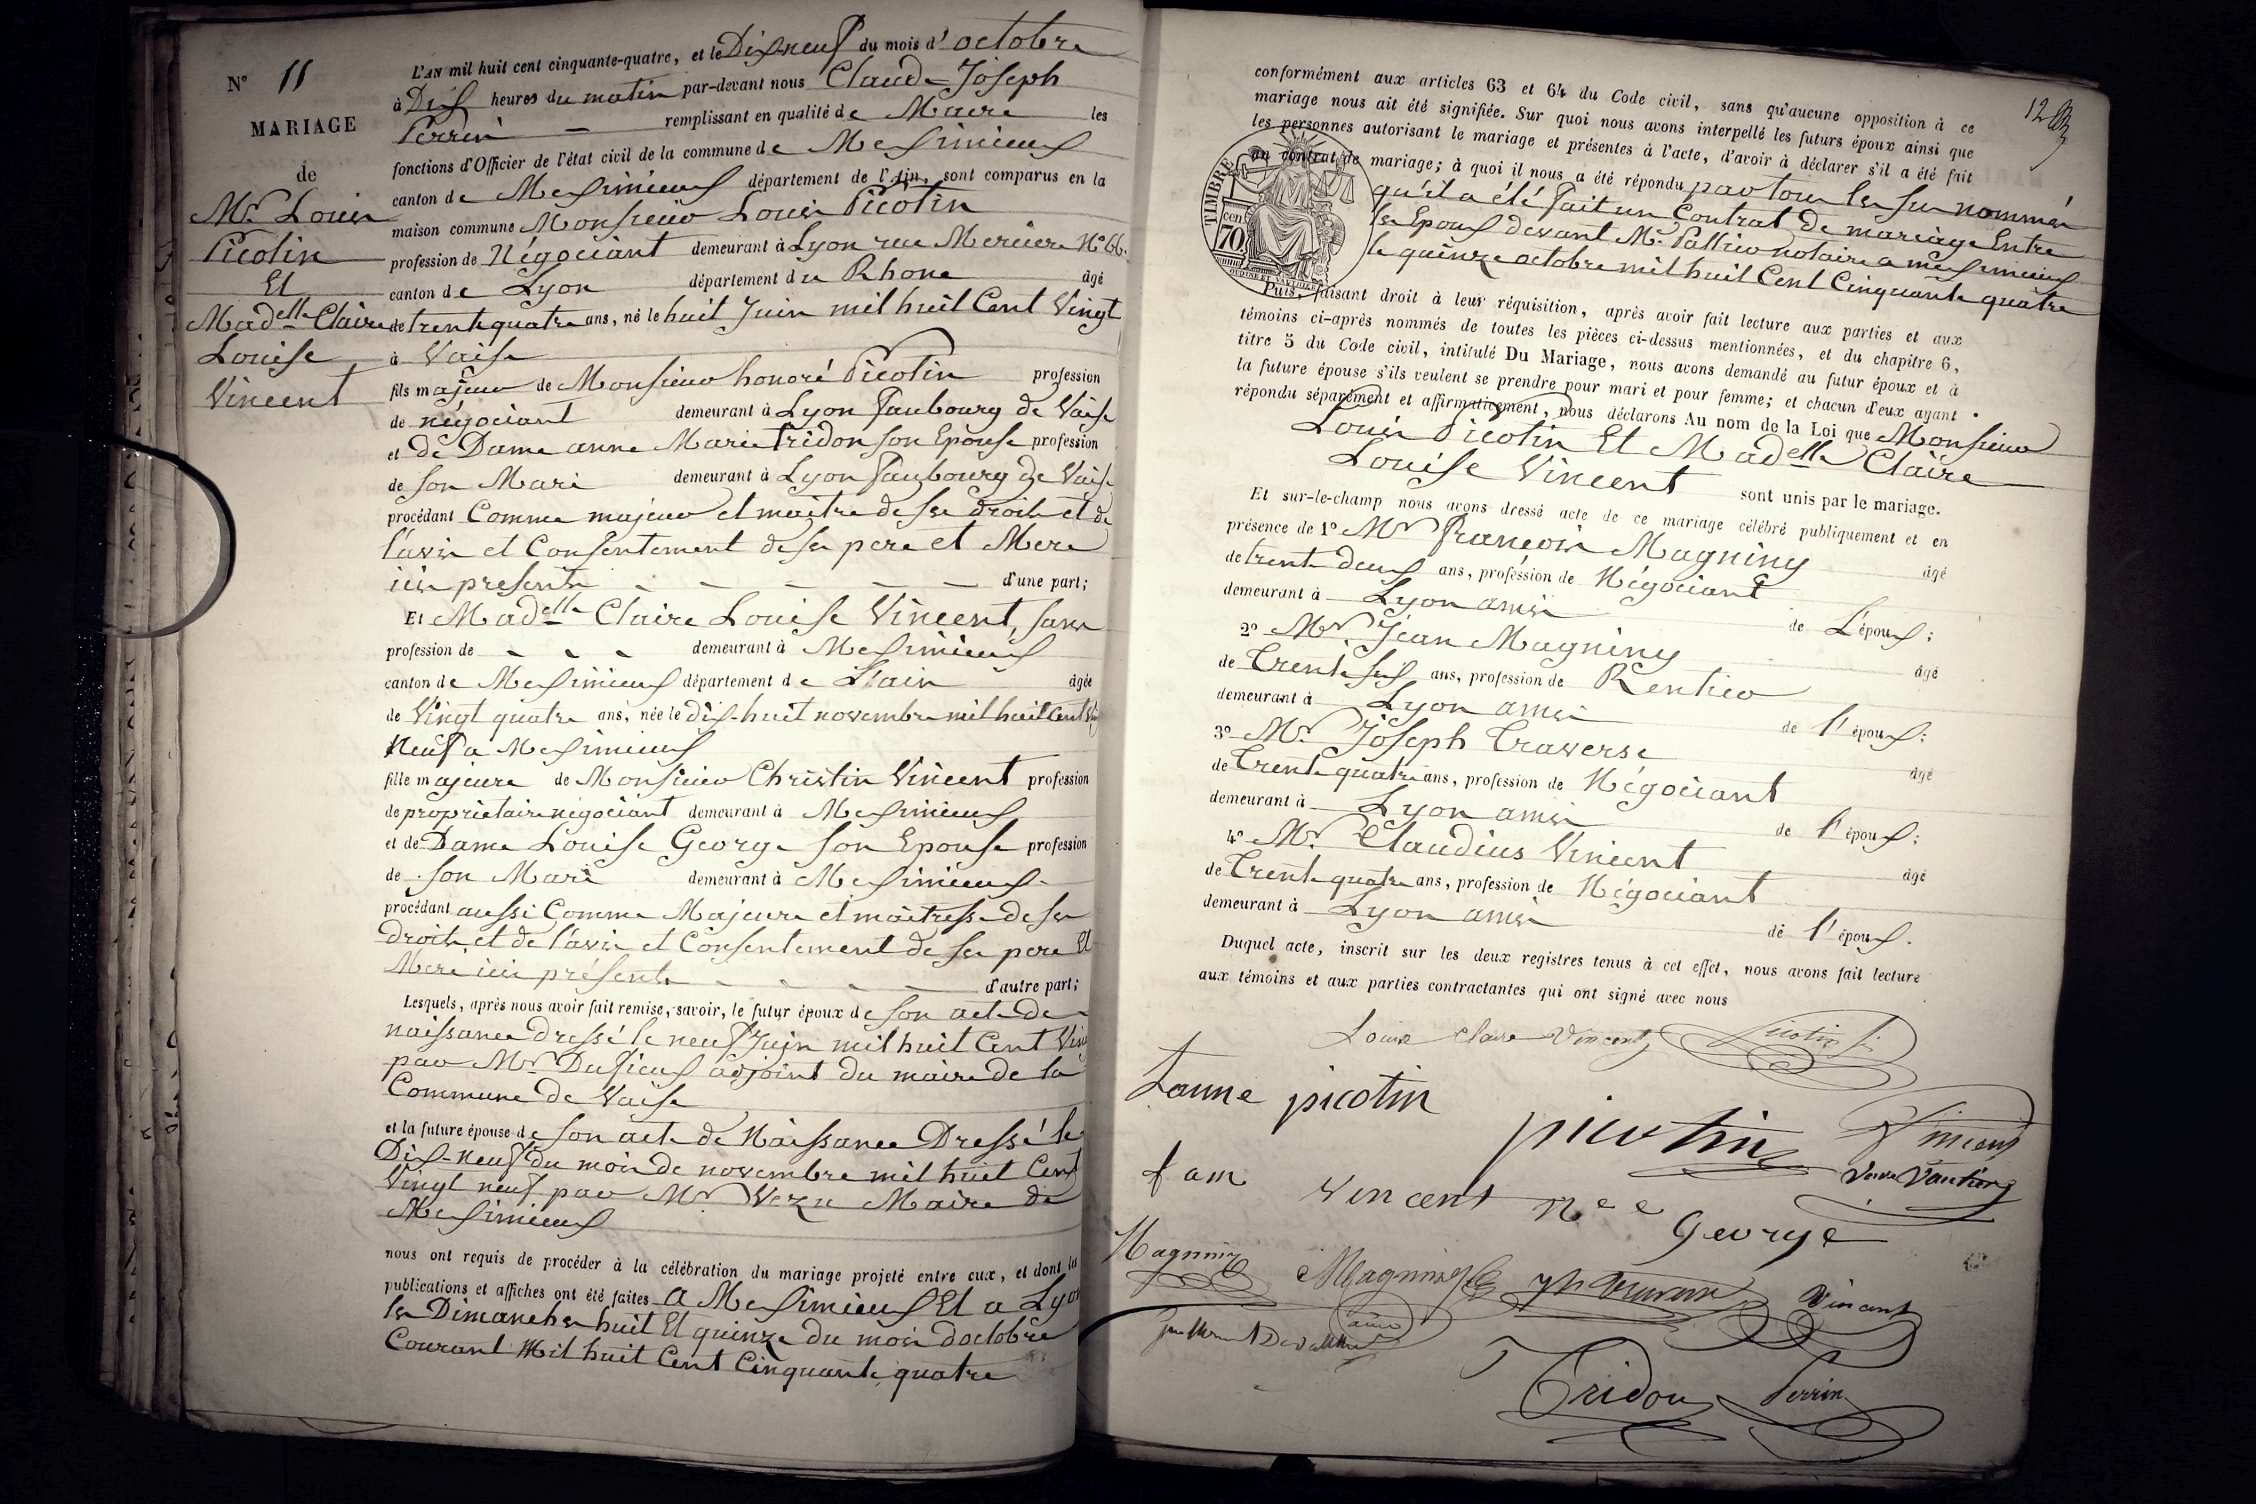 N° 11
MARIAGE
de
Mr. Louis
Picotin
Et
Madelle Claire
Louise
Vincent
L'AN mil huit cent cinquante-quatre, et le Dix-neuf du mois d'octobre
à Dix heures du matin par-devant nous Claude Joseph
Perrin remplissant en qualité de Maire les
fonctions d'Officier de l'état civil de la commune de Meximieux
canton de Meximieux département de l'Ain, sont comparus en la
maison commune Monsieur Louis Picotin
profession de Négociant demeurant à Lyon rue Merciere N° 66.
canton de Lyon département du Rhone âgé
de trente quatre ans, né le huit Juin mil huit Cent Vingt
à Vaise
fils majeur de Monsieur honoré Picotin profession
de négociant demeurant à Lyon faubourg de Vaise
et de Dame anne Marie Tridon son Epouse profession
de son Mari demeurant à Lyon faubourg de Vaise
procédant Comme majeur et maitre de ses droits et de
l'avis et Consentement de ses pere et Mere
ici presents d'une part;
Et Madelle Claire Louise Vincent, sans
profession de demeurant à Meximieux
canton de Meximieux département de L'ain âgée
de Vingt quatre ans, née le dix-huit novembre mil huit Cent Vingt
Neuf a Meximieux
fille majeure de Monsieur Christin Vincent profession
de proprietaire négociant demeurant à Meximieux
et de Dame Louise George son Epouse profession
de son Mari demeurant à Meximieux
procédant aussi Comme Majeure et maitresse de ses
droits et de l'avis et Consentement de ses pere Et
Mere ici présents d'autre part;
Lesquels, après nous avoir fait remise, savoir, le futur époux de son acte de
naissance dressé le neuf Juin mil huit Cent Vingt
par Mr Dusieux adjoint du maire de la
Commune de Vaise
et la future épouse de son acte de Naissance Dressé le
Dix-neuf du mois de novembre mil huit Cent
Vingt neuf par Mr. Vezu Maire de
Meximieux
nous ont requis de procéder à la célébration du mariage projeté entre eux, et dont les
publications et affiches ont été faites a Meximieux Et a Lyon
les Dimanches huit Et quinze du mois d'octobre
Courant Mil huit Cent Cinquante quatre
12
conformément aux articles 63 et 64 du Code civil, sans qu'aucune opposition à ce
mariage nous ait été signifiée. Sur quoi nous avons interpellé les futurs époux ainsi que
les personnes autorisant le mariage et présentes à l'acte, d'avoir à déclarer s'il a été fait
un contrat de mariage; à quoi il nous a été répondu par tous les sus nommés
qu'il a été fait un Contrat de mariage Entre
les Epoux devant Me. Pallier notaire a meximieux
le quinze octobre mil huit Cent Cinquante quatre
TIMBRE
70
cen
Puis, faisant droit à leur réquisition, après avoir fait lecture aux parties et aux
témoins ci-après nommés de toutes les pièces ci-dessus mentionnées, et du chapitre 6,
titre 5 du Code civil, intitulé Du Mariage, nous avons demandé au futur époux et à
la future épouse s'ils veulent se prendre pour mari et pour femme; et chacun d'eux ayant
répondu séparément et affirmativement, nous déclarons Au nom de la Loi que Monsieur
Louis Picotin Et Madelle Claire
Louise Vincent sont unis par le mariage.
Et sur-le-champ nous avons dressé acte de ce mariage célébré publiquement et en
présence de 1° Mr François Magniny âgé
de trente deux ans, profession de Négociant
demeurant à Lyon amis de L'époux;
2° Mr. Jean Magniny âgé
de Trente six ans, profession de Rentier
demeurant à Lyon amis de l'époux;
3° Mr. Joseph Traverse âgé
de Trente quatre ans, profession de Négociant
demeurant à Lyon amis de l'époux;
4° Mr. Claudius Vincent âgé
de Trente quatre ans, profession de Négociant
demeurant à Lyon amis de l'époux.
Duquel acte, inscrit sur les deux registres tenus à cet effet, nous avons fait lecture
aux témoins et aux parties contractantes qui ont signé avec nous
Louise Claire Vincent Picotin
fanne picotin
picotin Vincent
fam vincent née george
Magniny Magniny Vincent
Tridon Perrin